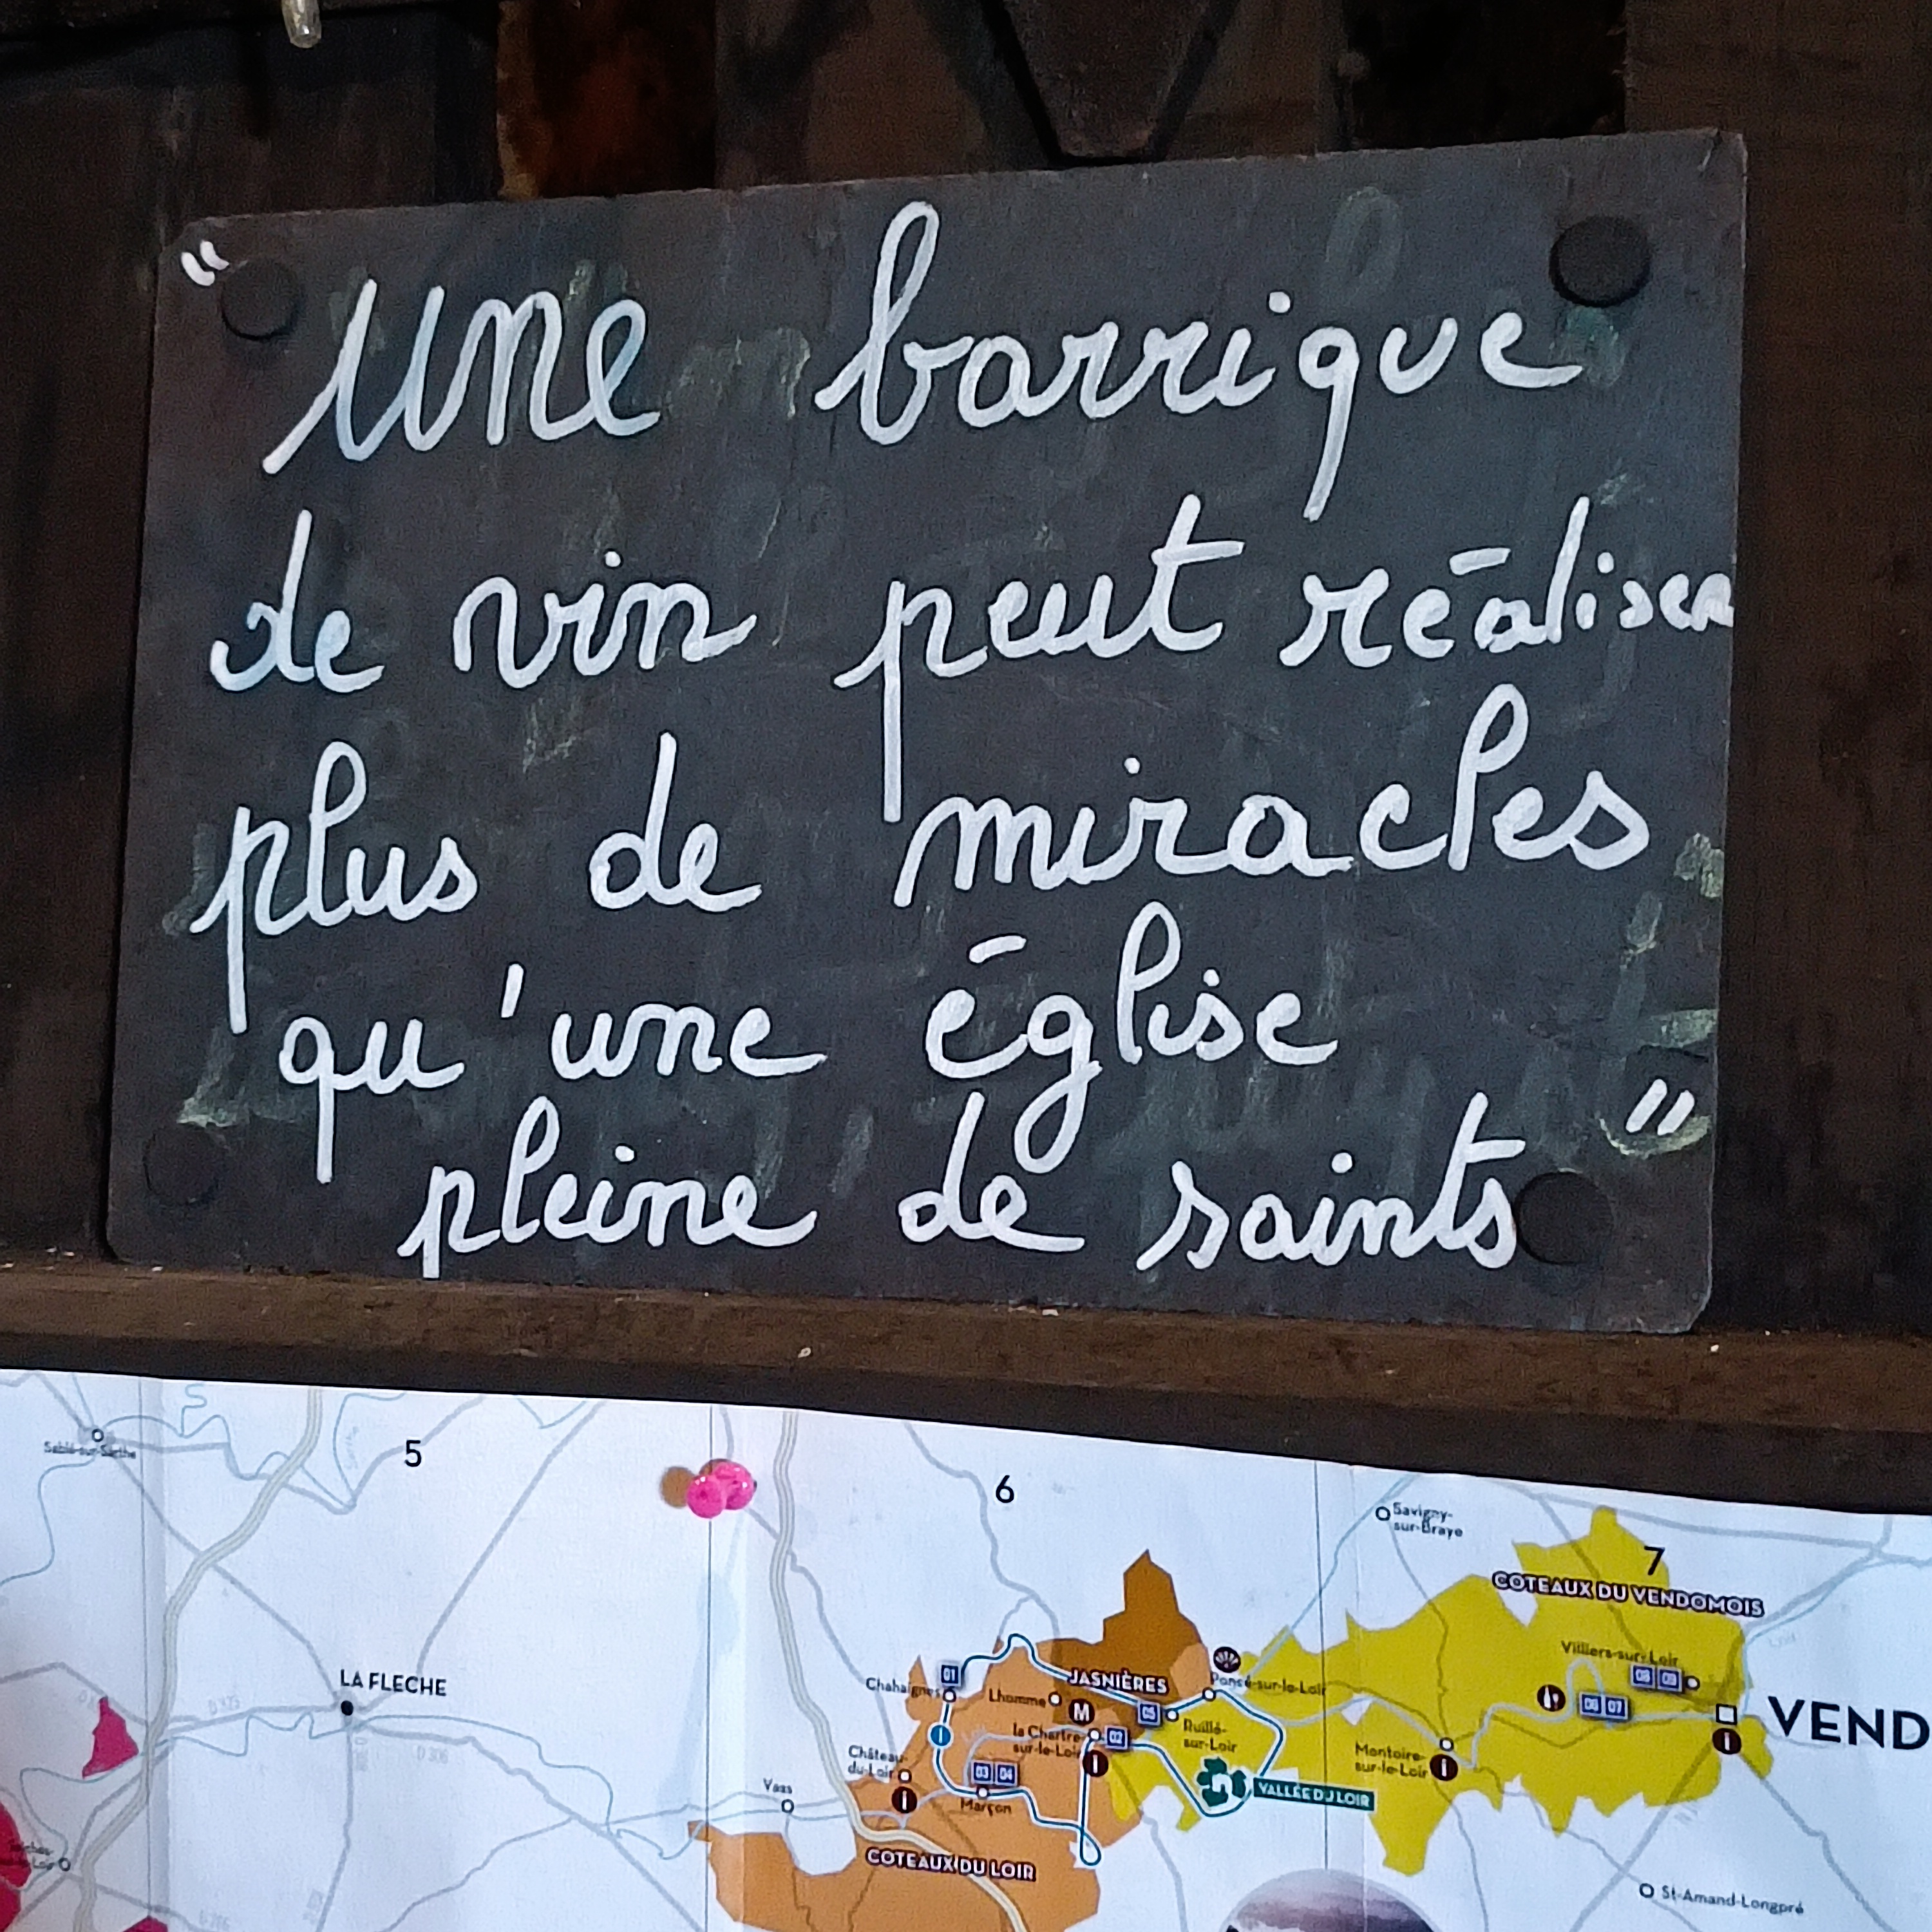 “ Une barrique
de vin peut réaliser
plus de miracles
qu'une église
pleine de saints "
Sablé-sur-Sarthe
5
6
7
Savigny-
sur-Braye
COTEAUX DU VENDOMOIS
Villiers-sur-Loir
08 09
06 07
VEND
LA FLECHE
D 306
01
Chahaignes
Lhomme
JASNIÈRES
M
Poncé-sur-le-Loir
05
Ruillé-
sur-Loir
la Chartre-
sur-le-Loir
02
i
Château-
du-Loir
i
03 04
Marçon
Montoire-
sur-le-Loir
i
i
VALLÉE DU LOIR
Vaas
COTEAUX DU LOIR
St-Amand-Longpré